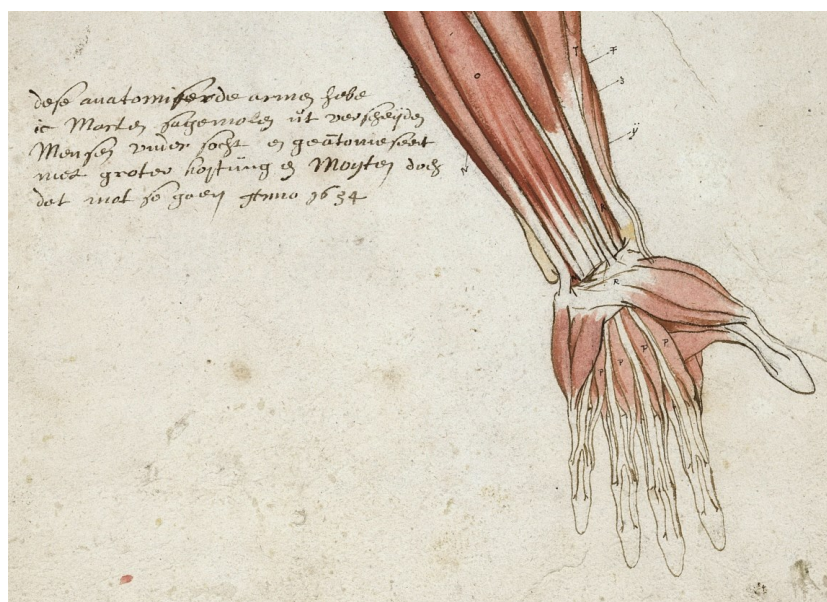 dese anatomiserde armen hebe
ic Marten sagemolen ut verscheyden
Mensen vuer socht en geanatomiseert
met groter kostung en Moyten doch
dat mot so gaen Anno 1634
T
F
o
3
ÿ
N
R
P
P
P
P